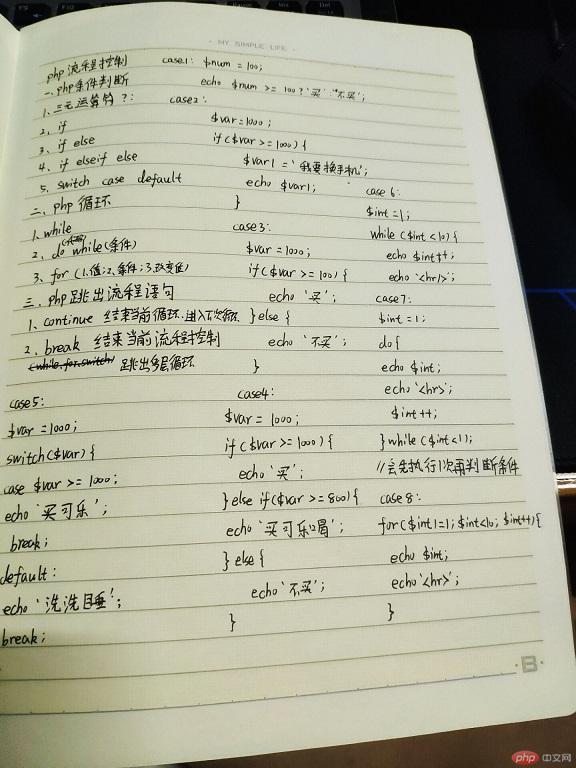 MY SIMPLE LIFE
php 流程控制
一、php条件判断
1. 三元运算符 ?:
2. if
3. if else
4. if elseif else
5. switch case default
二、php 循环
1. while
2. do while(条件)
3. for (1.值;2.条件;3.改变值)
三、php 跳出流程语句
1. continue 结束当前循环,进入下次循环
2. break 结束当前流程控制
(while.for.switch) 跳出多层循环
case1: $num = 100;
echo $num >= 100 ? '买' : '不买';
case2:
$var=1000;
if($var>=1000){
$var1 = '我要换手机';
echo $var1;
}
case3:
$var=1000;
if($var>=100){
echo '买';
}else{
echo '不买';
}
case4:
$var= 1000;
if($var>=1000){
echo '买';
}else if($var>=800){
echo '买可乐喝';
}else{
echo '不买';
}
case5:
$var =1000;
switch($var){
case $var >= 1000;
echo '买可乐';
break;
default:
echo '洗洗睡';
break;
case 6:
$int=1;
while($int<10){
echo $int++;
echo '<hr/>';
case7:
$int=1;
do{
echo $int;
echo '<hr>';
$int++;
}while($int<1);
//会先执行1次再判断条件
case8:
for($int1=1;$int<10;$int++){
echo $int;
echo '<hr>';
}
B
php 中文网